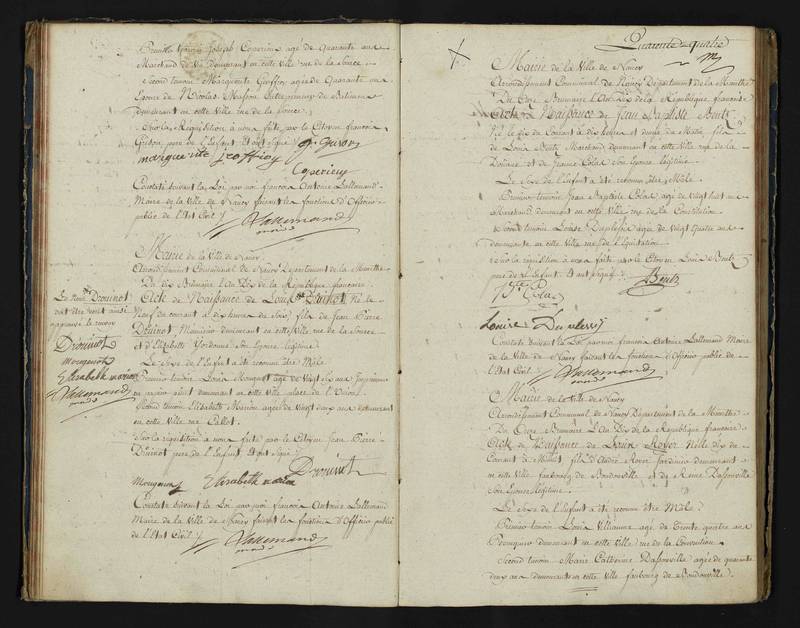 Joseph Coperieu agé de quarante ans
Marchand de Vin demeurant en cette ville rue de la Source
Second temoin Marguerite Geoffroy agée de quarante ans
Epouse de Nicolas Masson Entrepreneur de Batimens
demeurant en cette ville rue de la Source
Sur la Requisition à nous faite par le Citoyen francois
Guson, pere de l'Enfant Et ont signé
marguerite geoffroy
Coperieu
Constaté suivant la Loi par moi francois Antoine Lallemand
Maire de la Ville de Nancy faisant les fonctions d'Officier
public de l'Etat Civil
Lallemand
maire
Mairie de la Ville de Nancy
Arrondissement Communal de Nancy Departement de la Meurthe
Du dix Brumaire l'An Dix de la République francaise
Acte de Naissance de Louis Drouinot Né le
Neuf du courant à dix heures du Soir, fils de Jean Pierre
Drouinot Menuisier demeurant en cette Ville rue de la Source
et d'Elizabeth son Epouse legitime
Le Sexe de l'Enfant a été reconnu être Mâle
Premier temoin Louis Mougenot agé de vingt six ans Imprimeur
demeurant en cette Ville place de l'Union
Second temoin Elizabeth Marion agée de vingt deux ans demeurant
en cette Ville rue Callot
Sur la requisition à nous faite par le Citoyen Jean Pierre
Drouinot pere de l'Enfant Et ont signé
Drouinot
Mougenot Elisabeth marion
Constaté suivant la Loi par moi francois Antoine Lallemand
Maire de la Ville de Nancy faisant les fonctions d'Officier public
de l'Etat Civil
Lallemand
maire
Drouinot
mougenot
Elisabeth marion
Lallemand
maire
Quarante-quatre
Mairie de la Ville de Nancy
Arrondissement Communal de Nancy Departement de la Meurthe
Du Onze Brumaire l'An Dix de la République francaise
Acte de Naissance de Jean Baptiste Bentz
Né le dix du Courant à dix heures et demie du Matin, fils
de Louis Bentz Marchand demeurant en cette ville rue de la
Douane et de Jeanne Colas Son Epouse legitime
Le Sexe de l'Enfant a été reconnu être Mâle
Premier temoin Jean Baptiste Colas agé de vingt huit ans
Marchand demeurant en cette Ville rue de la Constitution
Second temoin Louise agée de vingt quatre ans
demeurante en cette Ville rue de l'Equitation
Sur la requisition à nous faite par le Citoyen Louis Bentz
pere de l'Enfant Et ont signé
Bentz
Colas
Louise
Constaté suivant la Loi par moi francois Antoine Lallemand Maire
de la Ville de Nancy faisant les fonctions d'Officier public de
l'Etat Civil
Lallemand
maire
Mairie de la Ville de Nancy
Arrondissement Communal de Nancy Departement de la Meurthe
Du Onze Brumaire L'An Dix de la République francaise
Acte de Naissance de Louis Royer Né le dix du
Courant à Minuit, fils d'André Royer Jardinier demeurant
en cette Ville faubourg de Boudonville et de Reine Dassonville
Son Epouse legitime
Le Sexe de l'Enfant a été reconnu être Mâle
Premier temoin Louis Villaume agé de Trente quatre ans
Perruquier demeurant en cette Ville rue de la Convention
Second temoin Marie Catherine Dassonville agée de quarante
deux ans demeurante en cette Ville faubourg de Boudonville